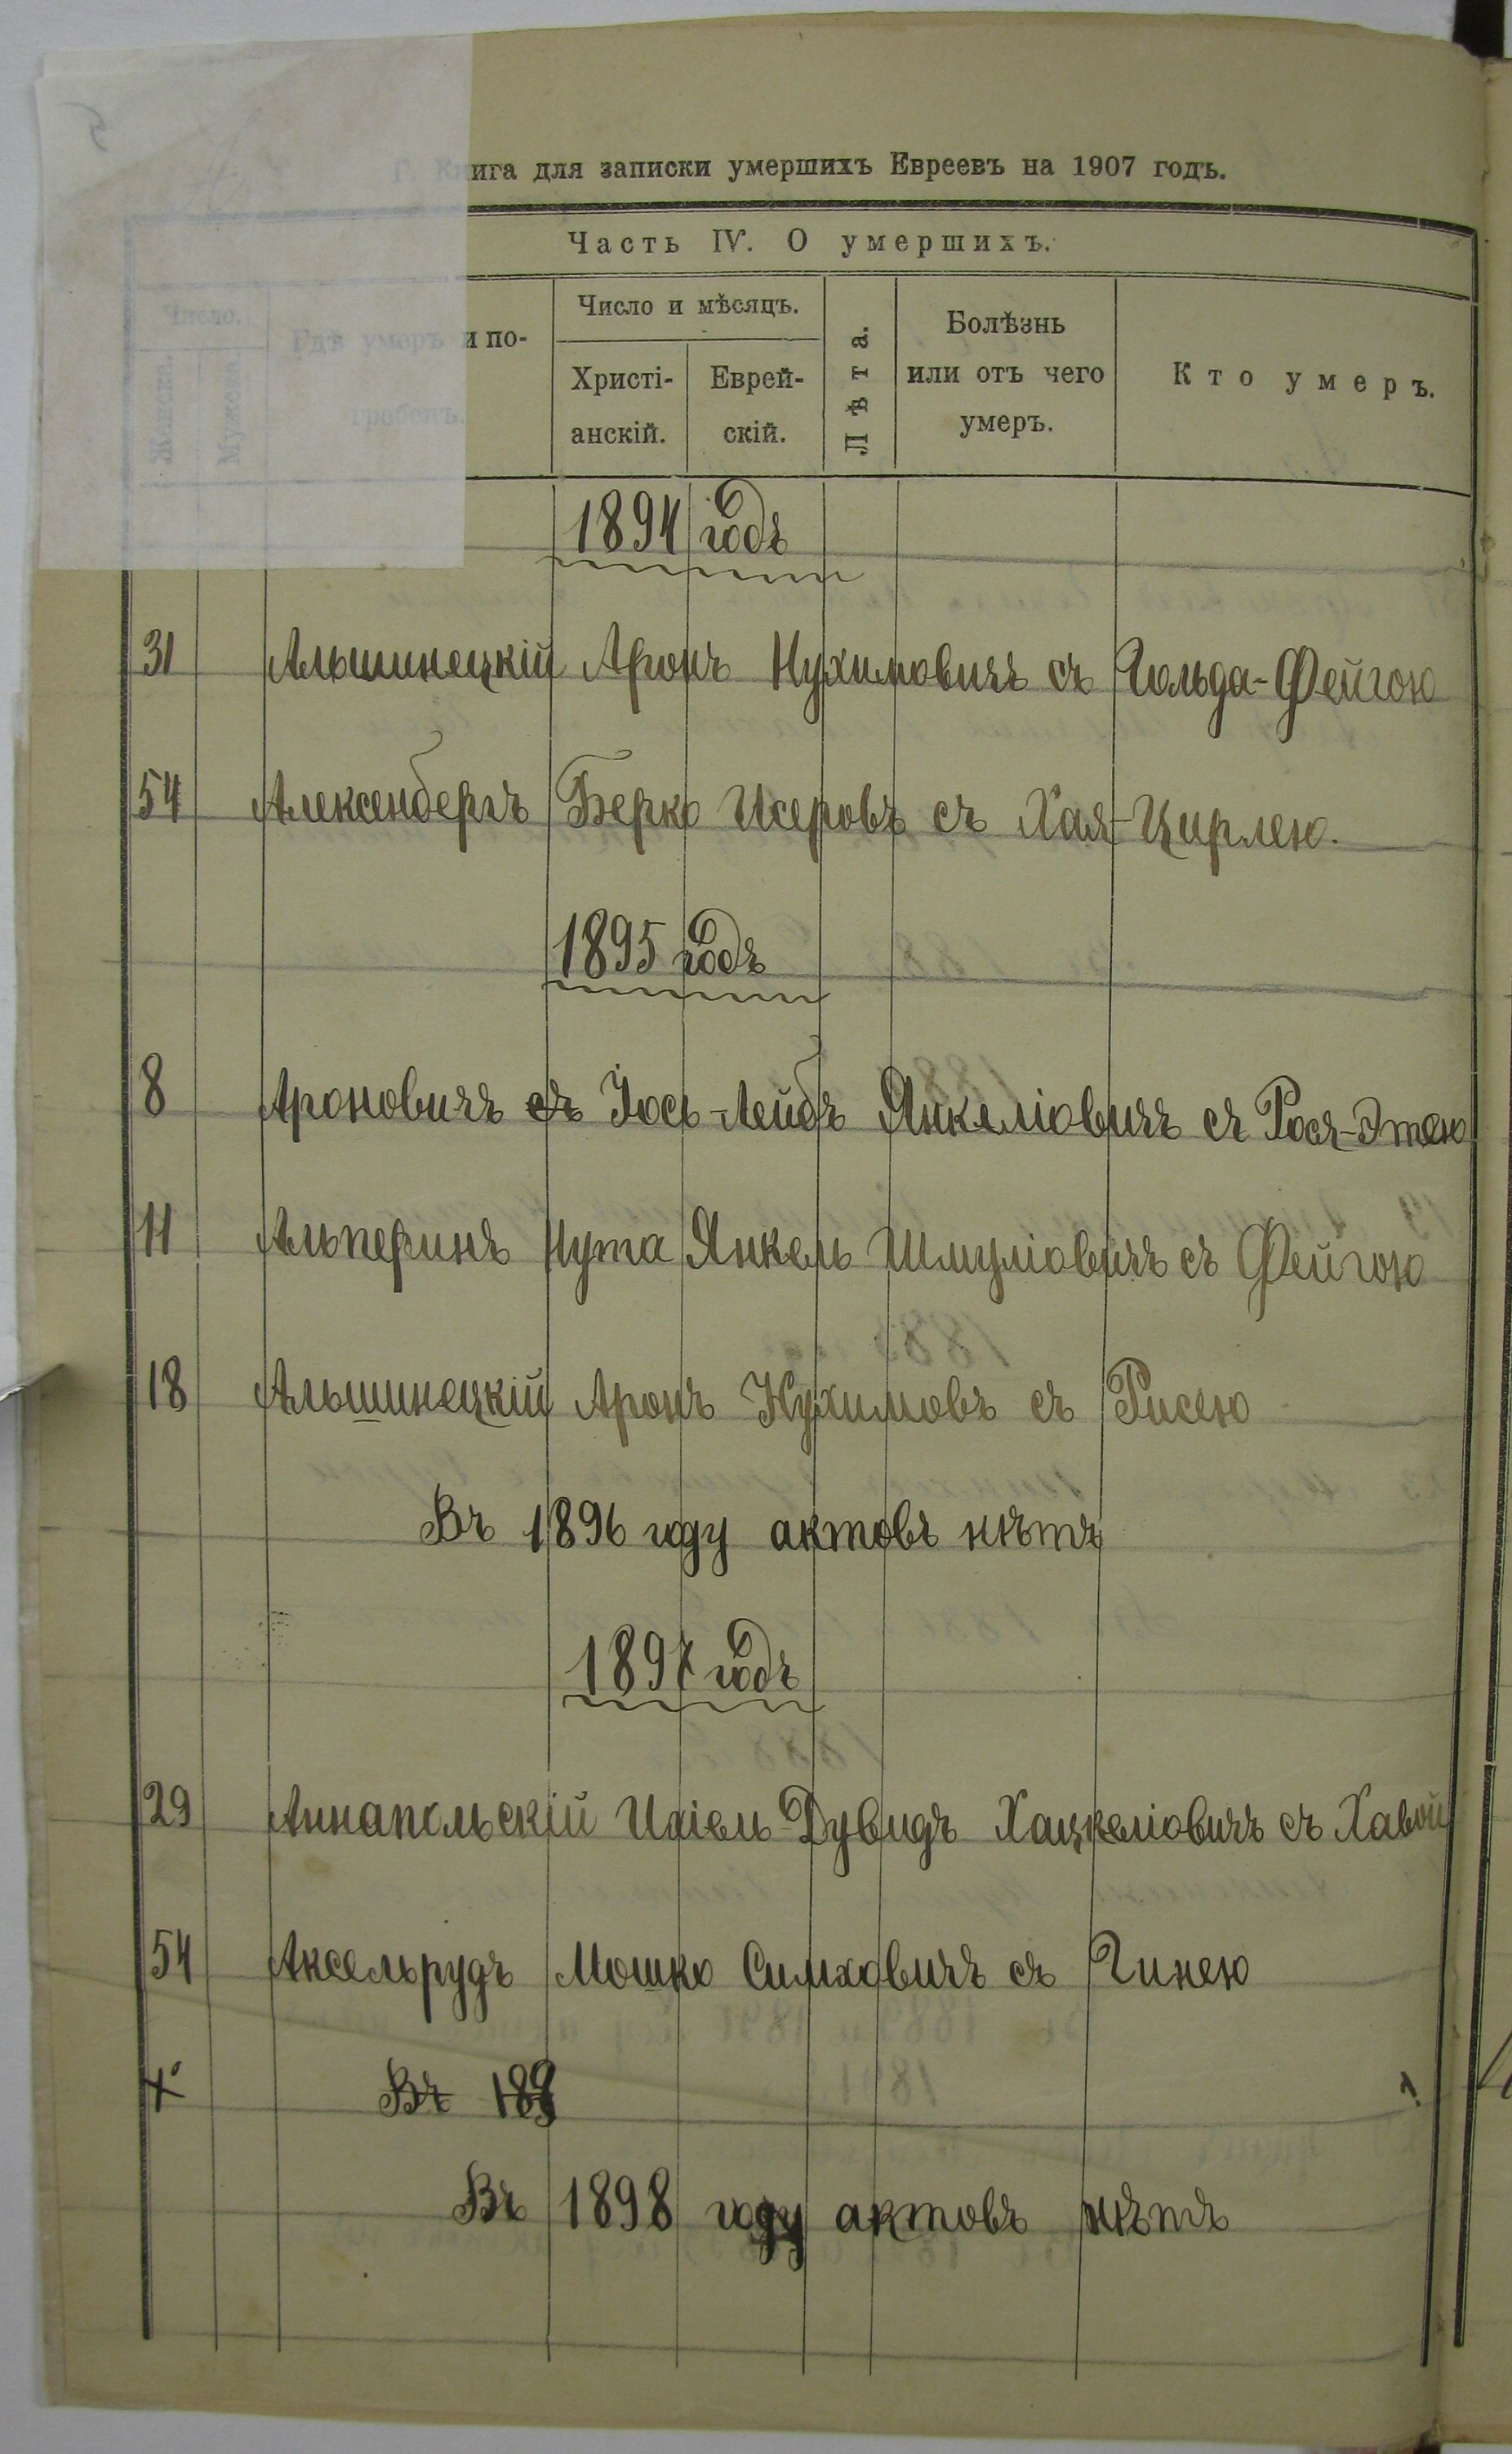 Г. Книга для записки умершихъ Евреевъ на 1907 годъ.
Часть IV. О умершихъ.
Число.
Женска.
Мужеска.
Гдѣ умеръ и погребенъ.
Число и мѣсяцъ.
Христіанскій.
Еврейскій.
Лѣта.
Болѣзнь или отъ чего умеръ.
Кто умеръ.
1894 годъ
31 Альшинецкій Аронъ Нухимовичъ съ Гольда-Фейгою
54 Алексенбергъ Берко Исеровъ съ Хая-Цирлею.
1895 годъ
8 Ароновичъ съ Іось-Лейбъ Янкеліовичъ съ Рося-Этею
11 Альперинъ Нута Янкель Шмуліовичъ съ Фейгою
18 Альшинецкій Аронъ Нухимовъ съ Рисею
Въ 1896 году актовъ нѣтъ
1897 годъ
29 Аннапольскій Ихіель-Дувидъ Хацкеліовичъ съ Хавой
54 Аксельрудъ Мошко Симховичъ съ Гинею
Въ 189
Въ 1898 году актовъ нѣтъ